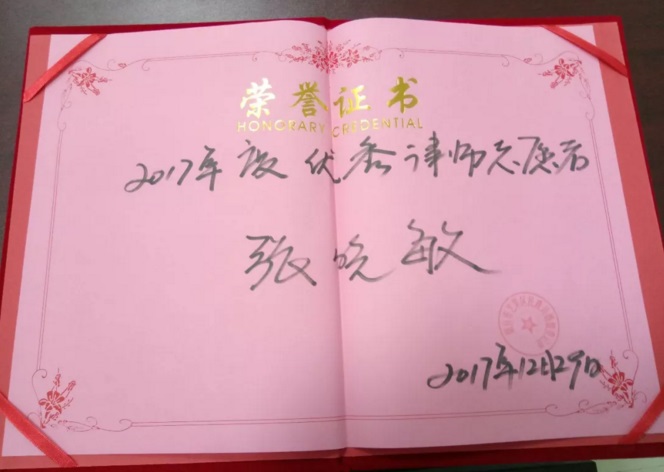 荣誉证书
HONORARY CREDENTIAL
2017年度优秀律师志愿者
张晓敏
2017年12月29日